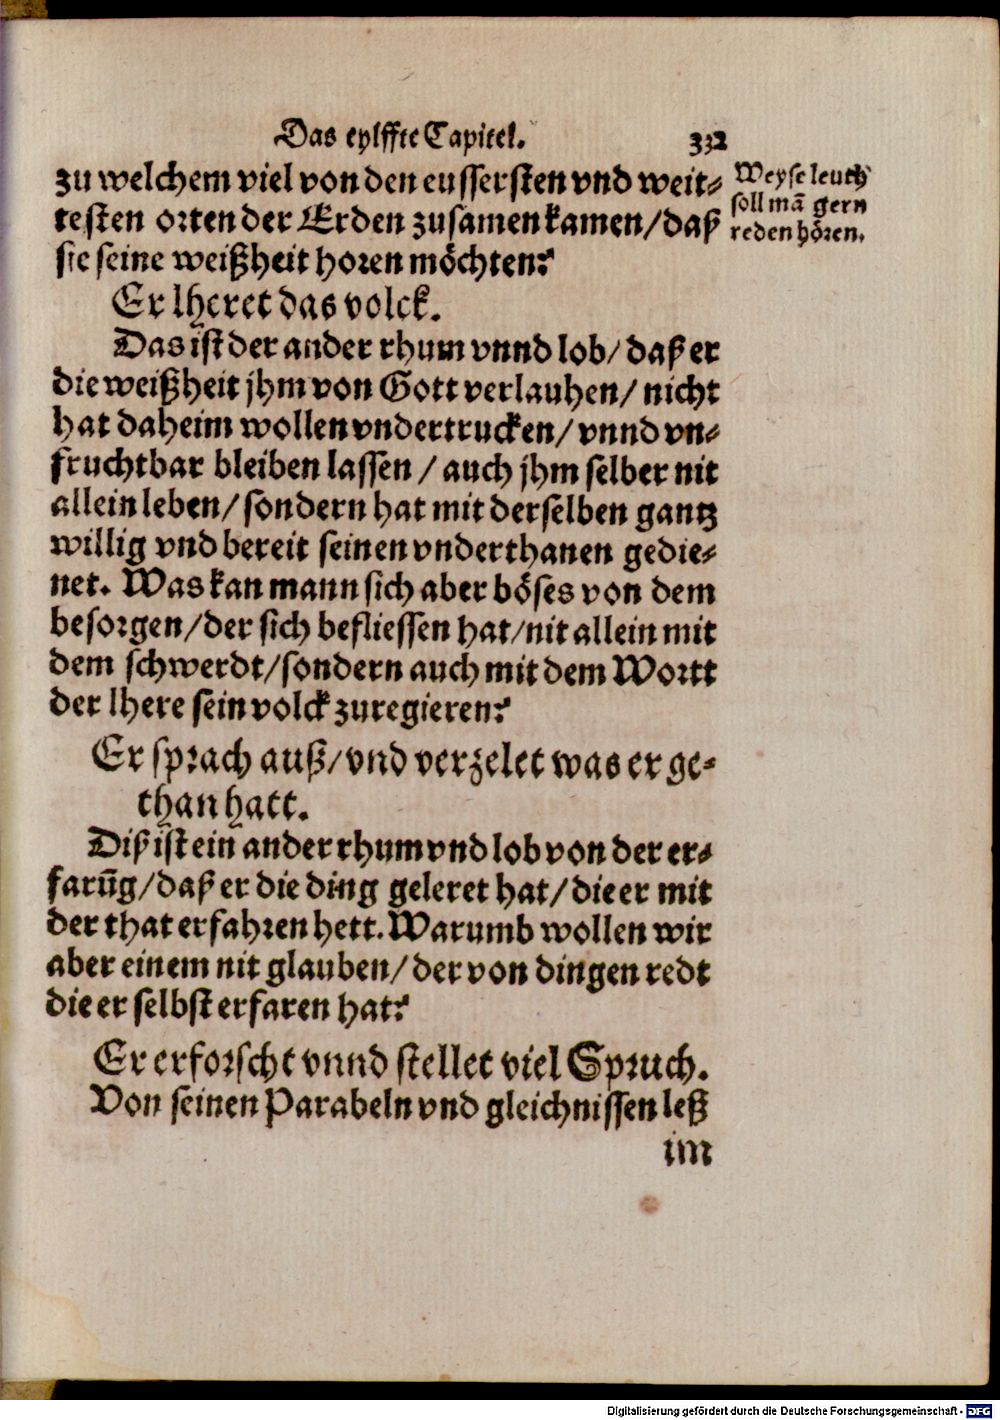 Das eylffte Capitel. 332
zu welchem viel von den eussersten vnd weit-
testen orten der Erden zusamen kamen/daß
sie seine weißheit horen möchten?
Weyse leuth
soll mā gern
reden hören.
Er lheret das volck.
Das ist der ander rhum vnnd lob/ daß er
die weißheit jhm von Gott verlauhen/ nicht
hat daheim wollen vndertrucken/ vnnd vn-
fruchtbar bleiben lassen / auch jhm selber nit
allein leben/ sondern hat mit derselben gantz
willig vnd bereit seinen vnderthanen gedie-
net. Was kan mann sich aber böses von dem
besorgen/der sich befliessen hat/nit allein mit
dem schwerdt/sondern auch mit dem Wortt
der lhere sein volck zuregieren?
Er sprach auß/vnd verzelet was er ge-
than hatt.
Diß ist ein ander rhum vnd lob von der er-
farūg/daß er die ding geleret hat/ die er mit
der that erfahren hett. Warumb wollen wir
aber einem nit glauben/ der von dingen redt
die er selbst erfaren hat?
Er erforscht vnnd stellet viel Spruch.
Von seinen Parabeln vnd gleichnissen leß
im
Digitalisierung gefördert durch die Deutsche Forschungsgemeinschaft - DFG